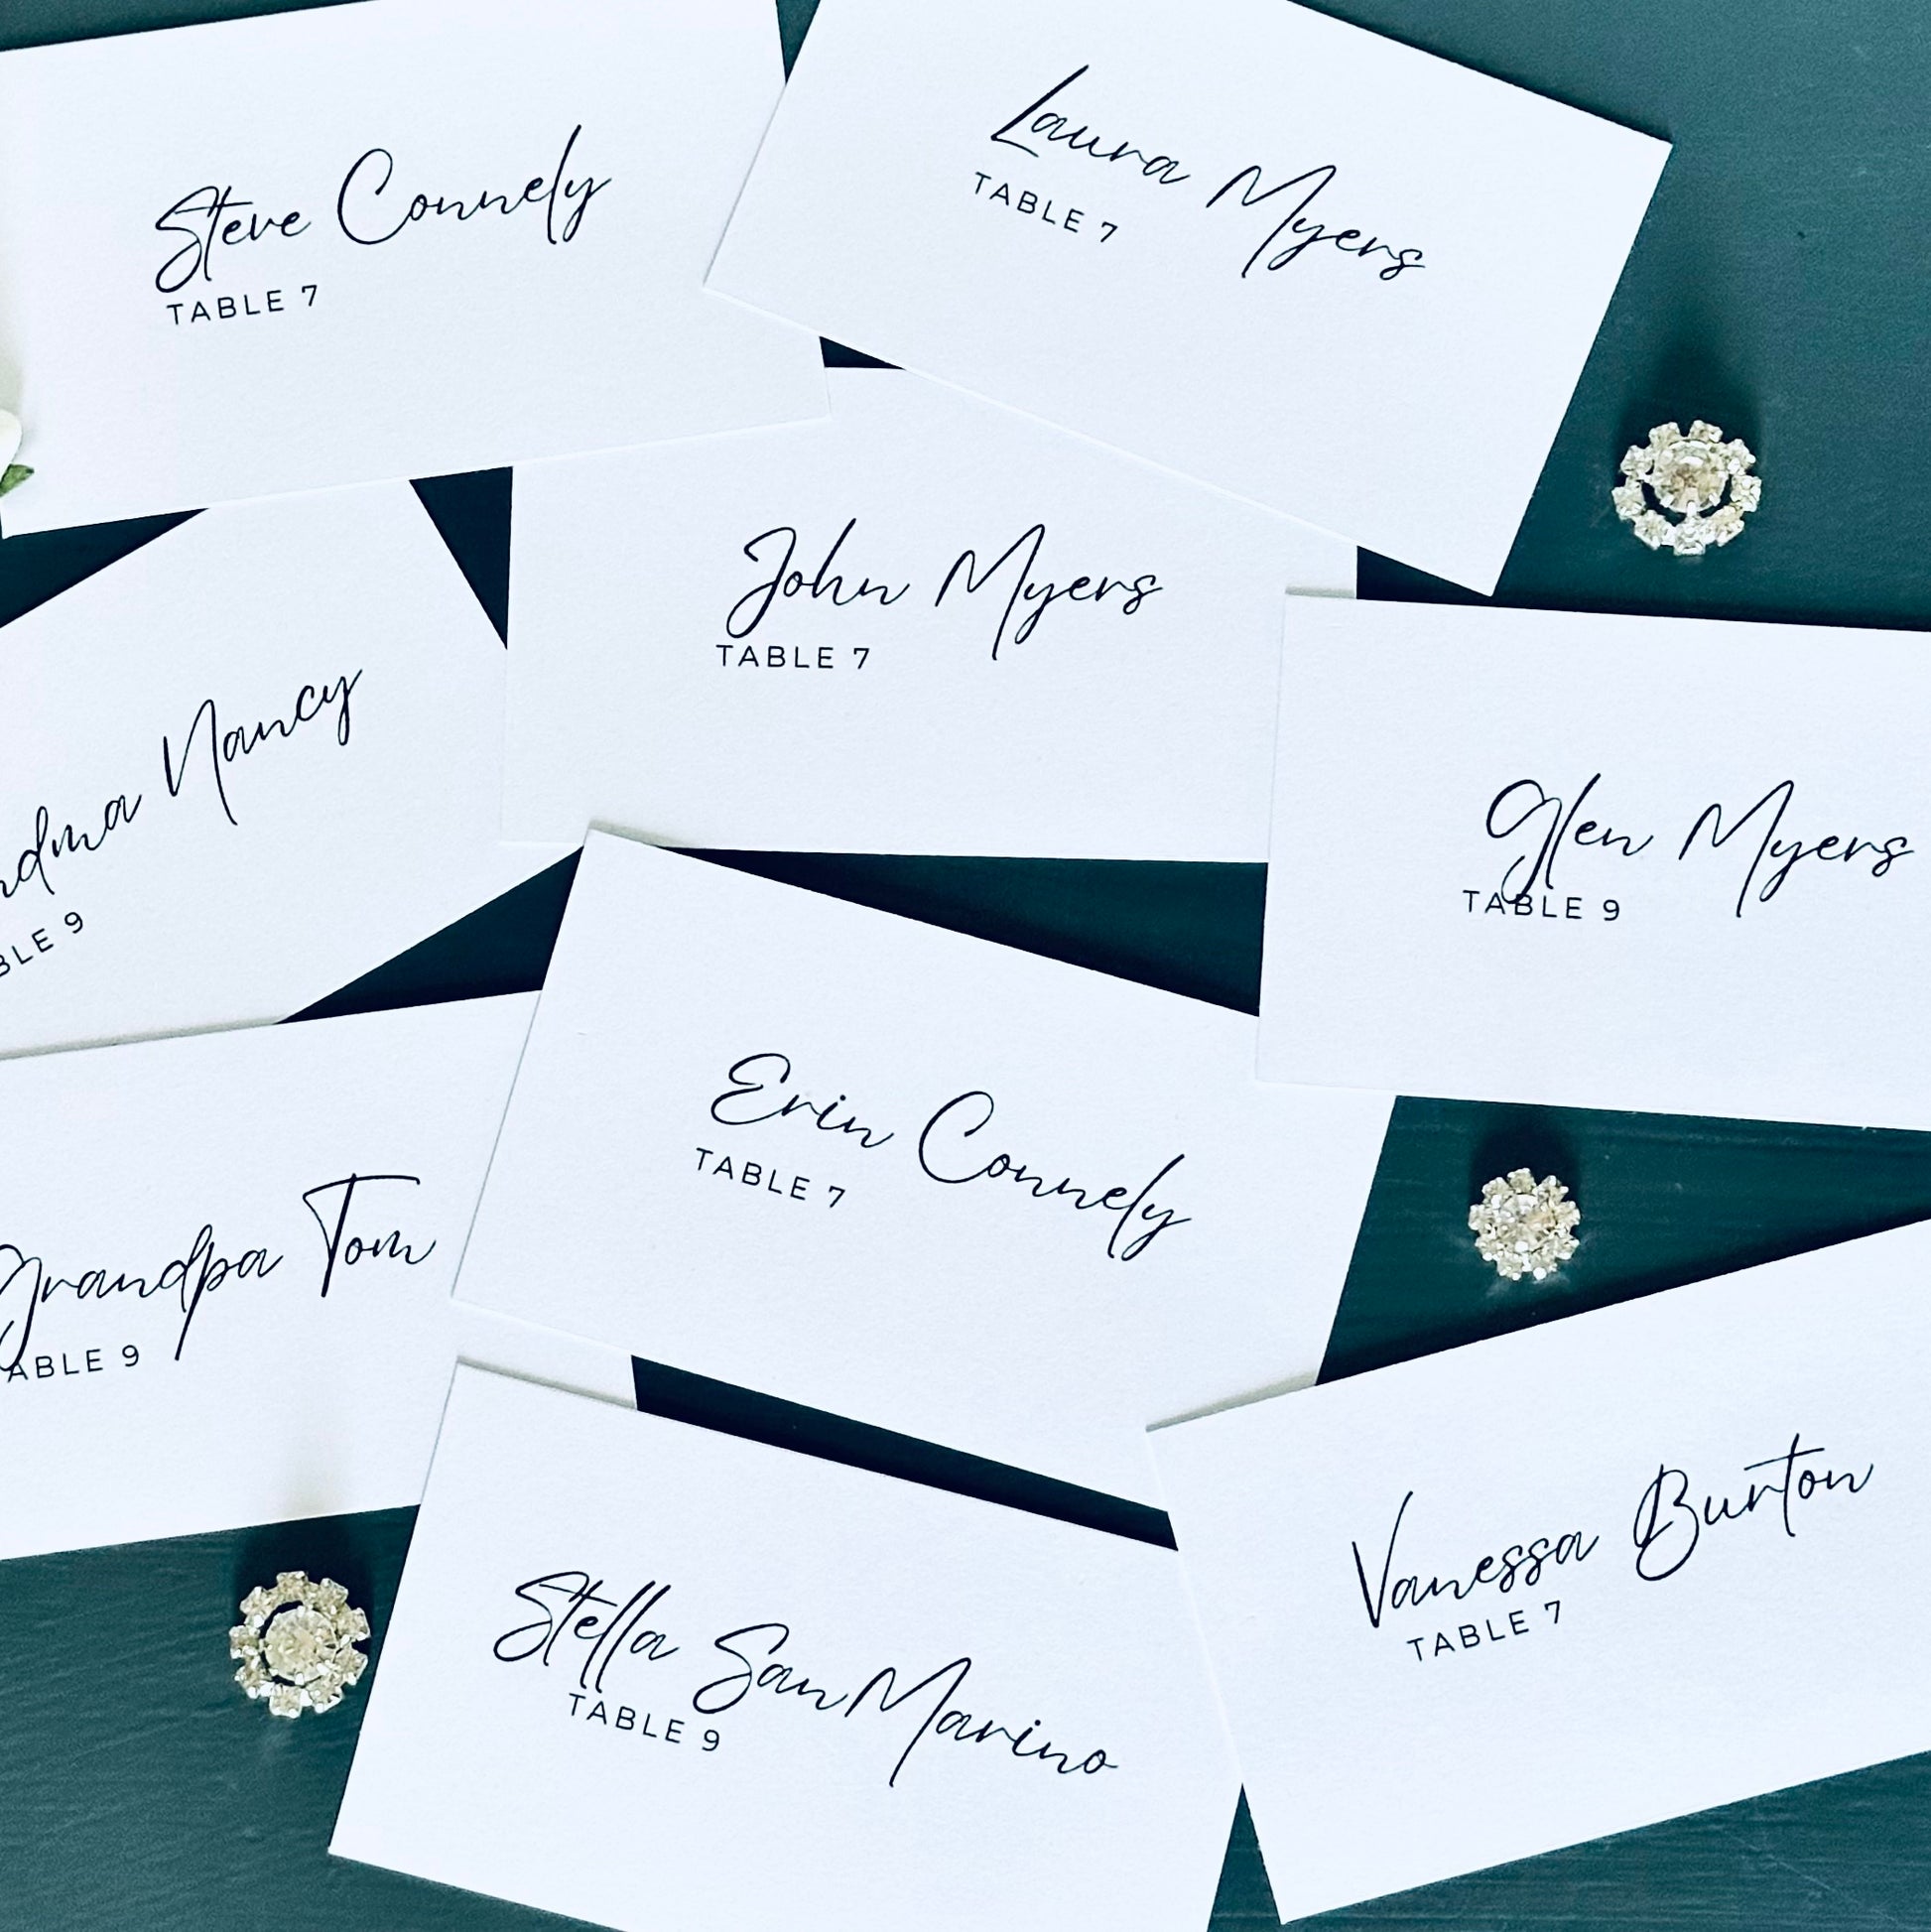 Steve Connely
TABLE 7
Laura Myers
TABLE 7
John Myers
TABLE 7
ndma Nancy
BLE 9
Glen Myers
TABLE 9
Erin Connely
TABLE 7
Grandpa Tom
ABLE 9
Stella SanMarino
TABLE 9
Vanessa Burton
TABLE 7